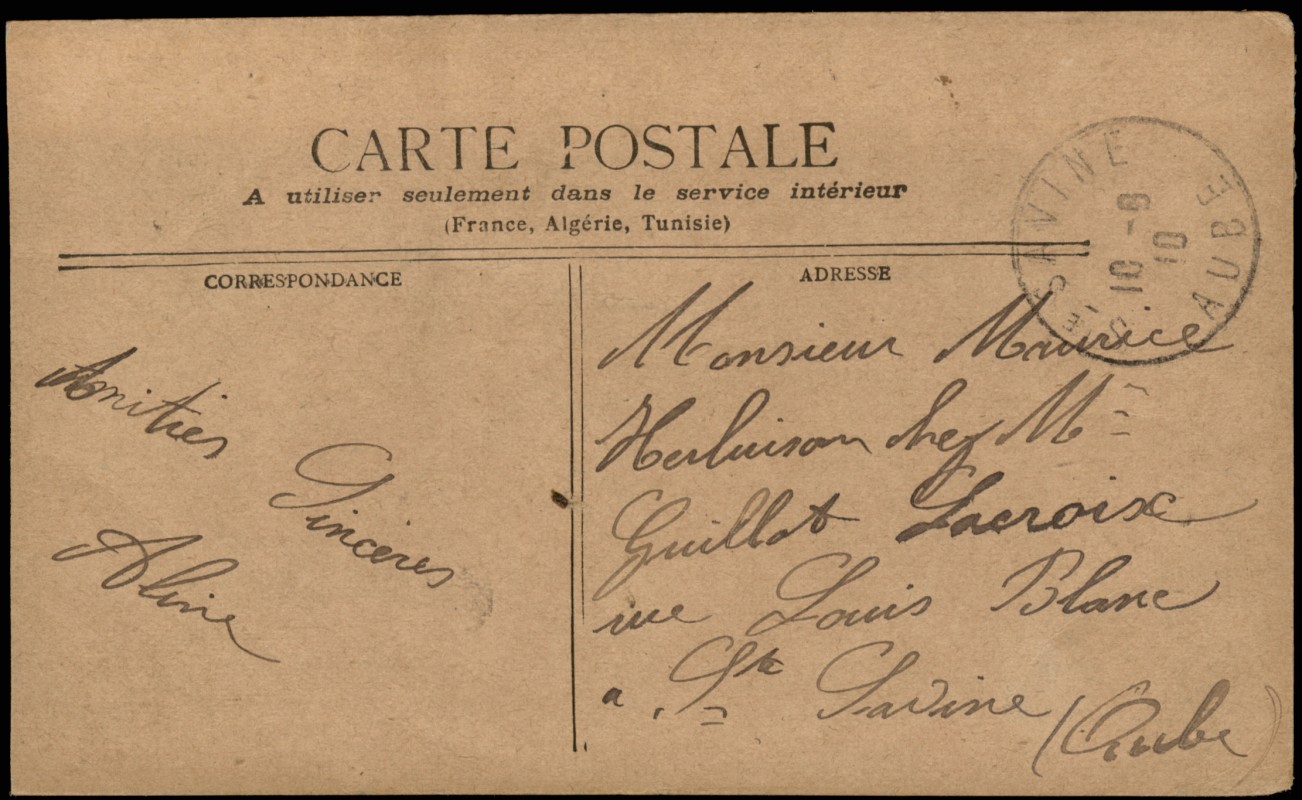 CARTE POSTALE
A utiliser seulement dans le service intérieur
(France, Algérie, Tunisie)
CORRESPONDANCE
ADRESSE
Amitiés
Sincères
Aline
Monsieur Maurice
Herluison chez Mr
Guillot Lacroix
rue Louis Blanc
a Ste Savine (Aube)
STE SAVINE
10 -9
10
AUBE